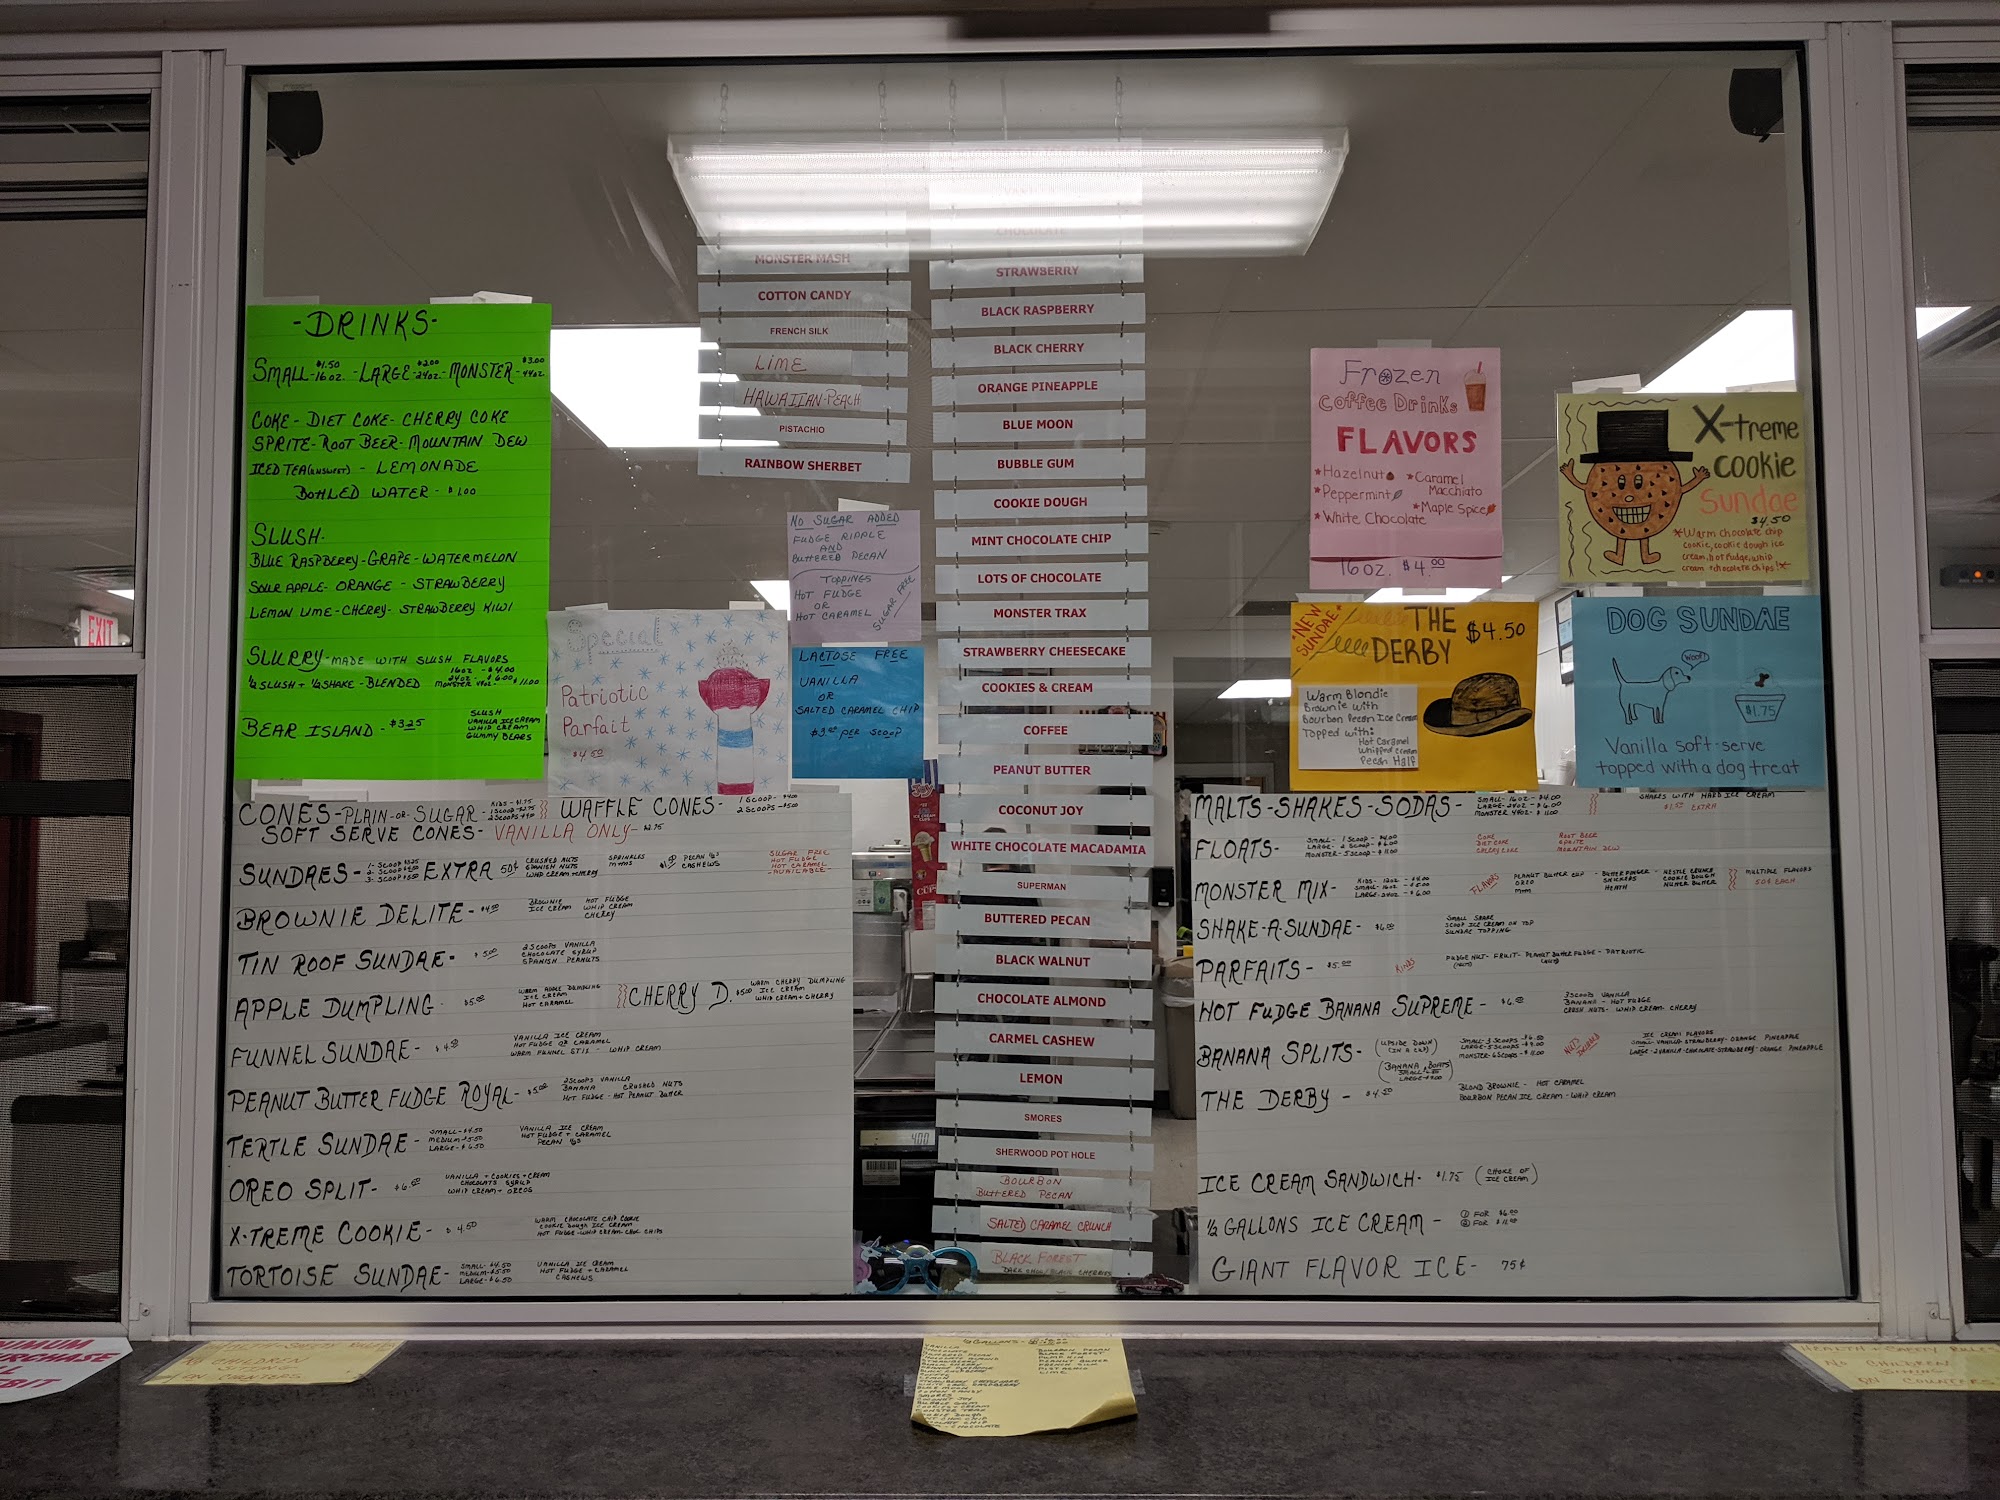 -DRINKS-
SMALL $1.50 16oz. - LARGE $2.00 24oz. - MONSTER $3.00 44oz.
COKE - DIET COKE - CHERRY COKE
SPRITE - ROOT BEER - MOUNTAIN DEW
ICED TEA (UNSWEET) - LEMONADE
BOTTLED WATER - $1.00
SLUSH-
BLUE RASPBERRY - GRAPE - WATERMELON
SOUR APPLE - ORANGE - STRAWBERRY
LEMON LIME - CHERRY - STRAWBERRY KIWI
SLURRY - MADE WITH SLUSH FLAVORS
½ SLUSH + ½ SHAKE - BLENDED
16oz - $4.00
24oz - $6.00
MONSTER 44oz - $11.00
BEAR ISLAND - $3.25
SLUSH
VANILLA ICE CREAM
WHIP CREAM
GUMMY BEARS
EXIT
Special
Patriotic
Parfait
$4.50
MONSTER MASH
COTTON CANDY
FRENCH SILK
LIME
HAWAIIAN PEACH
PISTACHIO
RAINBOW SHERBET
NO SUGAR ADDED
FUDGE RIPPLE
AND
BUTTERED PECAN
TOPPINGS
HOT FUDGE
OR
HOT CARAMEL
SUGAR FREE
LACTOSE FREE
VANILLA
OR
SALTED CARAMEL CHIP
PER SCOOP
CHOCOLATE
STRAWBERRY
BLACK RASPBERRY
BLACK CHERRY
ORANGE PINEAPPLE
BLUE MOON
BUBBLE GUM
COOKIE DOUGH
MINT CHOCOLATE CHIP
LOTS OF CHOCOLATE
MONSTER TRAX
STRAWBERRY CHEESECAKE
COOKIES & CREAM
COFFEE
PEANUT BUTTER
COCONUT JOY
WHITE CHOCOLATE MACADAMIA
SUPERMAN
BUTTERED PECAN
BLACK WALNUT
CHOCOLATE ALMOND
CARMEL CASHEW
LEMON
SMORES
SHERWOOD POT HOLE
BOURBON
BUTTERED PECAN
SALTED CARAMEL CRUNCH
BLACK FOREST
Frozen
Coffee Drinks
FLAVORS
*Hazelnut
*Caramel Macchiato
*Peppermint
*Maple Spice
*White Chocolate
16oz. $4.00
X-treme
cookie
Sundae
$4.50
*Warm chocolate chip
cookie, cookie dough ice
cream, hot fudge, whip
cream + chocolate chips!*
NEW SUNDAE!
THE
DERBY
$4.50
Warm Blondie
Brownie with
Bourbon Pecan Ice Cream
Topped with:
Hot Caramel
Whipped Cream
Pecan Half
DOG SUNDAE
WOOF!
$1.75
Vanilla soft-serve
topped with a dog treat
CONES - PLAIN - OR - SUGAR -
WAFFLE CONES -
SOFT SERVE CONES - VANILLA ONLY -
SUNDAES -
EXTRA 50¢
CRUSHED NUTS
SPANISH NUTS
WHIP CREAM + CHERRY
SPRINKLES
M+MS
CASHEWS
SUGAR FREE
HOT FUDGE
HOT CARAMEL
-AVAILABLE-
BROWNIE DELITE - $4.50
BROWNIE
ICE CREAM
HOT FUDGE
WHIP CREAM
CHERRY
TIN ROOF SUNDAE - $5.00
2 SCOOPS VANILLA
CHOCOLATE SYRUP
SPANISH PEANUTS
APPLE DUMPLING - $5.00
WARM APPLE DUMPLING
ICE CREAM
HOT CARAMEL
CHERRY D. $5.00
WARM CHERRY DUMPLING
ICE CREAM
WHIP CREAM + CHERRY
FUNNEL SUNDAE -
VANILLA ICE CREAM
HOT FUDGE OR CARAMEL
WHIP CREAM
PEANUT BUTTER FUDGE ROYAL - $5.00
2 SCOOPS VANILLA
BANANA
CRUSHED NUTS
HOT FUDGE - HOT PEANUT BUTTER
TERTLE SUNDAE -
SMALL - $4.50
MEDIUM - $5.50
LARGE - $6.50
VANILLA ICE CREAM
HOT FUDGE + CARAMEL
PECAN ½S
OREO SPLIT - $6.00
VANILLA + COOKIES + CREAM
CHOCOLATE SYRUP
WHIP CREAM + OREOS
X-TREME COOKIE - $4.50
WARM CHOCOLATE CHIP COOKIE
COOKIE DOUGH ICE CREAM
HOT FUDGE - WHIP CREAM CHOC CHIPS
TORTOISE SUNDAE -
SMALL - $4.50
MEDIUM - $5.50
LARGE - $6.50
VANILLA ICE CREAM
HOT FUDGE + CARAMEL
CASHEWS
MALTS - SHAKES - SODAS -
SMALL - 16oz - $4.00
LARGE - 24oz - $6.00
MONSTER 44oz - $11.00
SHAKES WITH HARD ICE CREAM
EXTRA
FLOATS -
SMALL - 1 SCOOP - $4.00
LARGE - 2 SCOOP - $6.00
MONSTER - 5 SCOOP - $11.00
COKE
DIET COKE
CHERRY COKE
ROOT BEER
SPRITE
MOUNTAIN DEW
MONSTER MIX -
FLAVORS
PEANUT BUTTER CUP
OREO
M+M
BUTTERFINGER
SNICKERS
HEATH
NESTLE CRUNCH
COOKIE DOUGH
NUTTER BUTTER
MULTIPLE FLAVORS
50¢ EACH
SHAKE-A-SUNDAE - $6.00
SMALL SHAKE
SCOOP ICE CREAM ON TOP
SUNDAE TOPPING
PARFAITS - $5.00
KINDS
FUDGE NUT - FRUIT - PEANUT BUTTER FUDGE - PATRIOTIC
HOT FUDGE BANANA SUPREME - $6.00
3 SCOOPS VANILLA
BANANA - HOT FUDGE
CRUSH NUTS - WHIP CREAM - CHERRY
BANANA SPLITS -
(UPSIDE DOWN)
(IN A CUP)
(BANANA BOATS
SMALL - 3 SCOOPS - $6.50
LARGE - 5 SCOOPS - $9.00
MONSTER - 6 SCOOPS - $11.00
ICE CREAM FLAVORS
SMALL - VANILLA - STRAWBERRY - ORANGE PINEAPPLE
LARGE - 2 VANILLA - CHOCOLATE - STRAWBERRY - ORANGE PINEAPPLE
THE DERBY - $4.50
BLOND BROWNIE - HOT CARAMEL
BOURBON PECAN ICE CREAM - WHIP CREAM
ICE CREAM SANDWICH - $1.75 (CHOICE OF ICE CREAM)
½ GALLONS ICE CREAM -
GIANT FLAVOR ICE - 75¢
4.00
NO CHILDREN
SITTING
ON COUNTERS
HEALTH + SAFETY RULES
NO CHILDREN
SITTING
ON COUNTERS